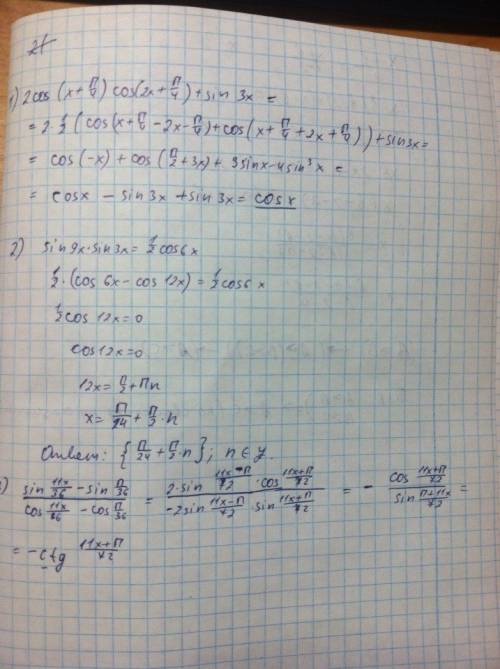 21
1) 2cos (x+π/4) cos(2x+π/4)+sin 3x =
= 2·1/2 (cos(x+π/4-2x-π/4)+cos(x+π/4+2x+π/4))+sin3x=
= cos(-x)+cos(π/2+3x)+3sinx-4sin³x =
= cosx - sin3x +sin3x= cosx
2) sin9x·sin3x=1/2cos6x
1/2·(cos 6x-cos 12x)=1/2cos6x
1/2cos 12x=0
cos12x=0
12x=π/2+πn
x=π/24+π/3·n
Ответ: {π/24+π/2·n}; n∈y.
) (sin 11x/36 - sin π/36)/(cos 11x/36 - cos π/36) = (2·sin (11x-π)/72 · cos (11x+π)/72)/(-2sin (11x-π)/72 · sin (11x+π)/72) = - (cos (11x+π)/72)/(sin (π+11x)/72) =
= -ctg (11x+π)/72